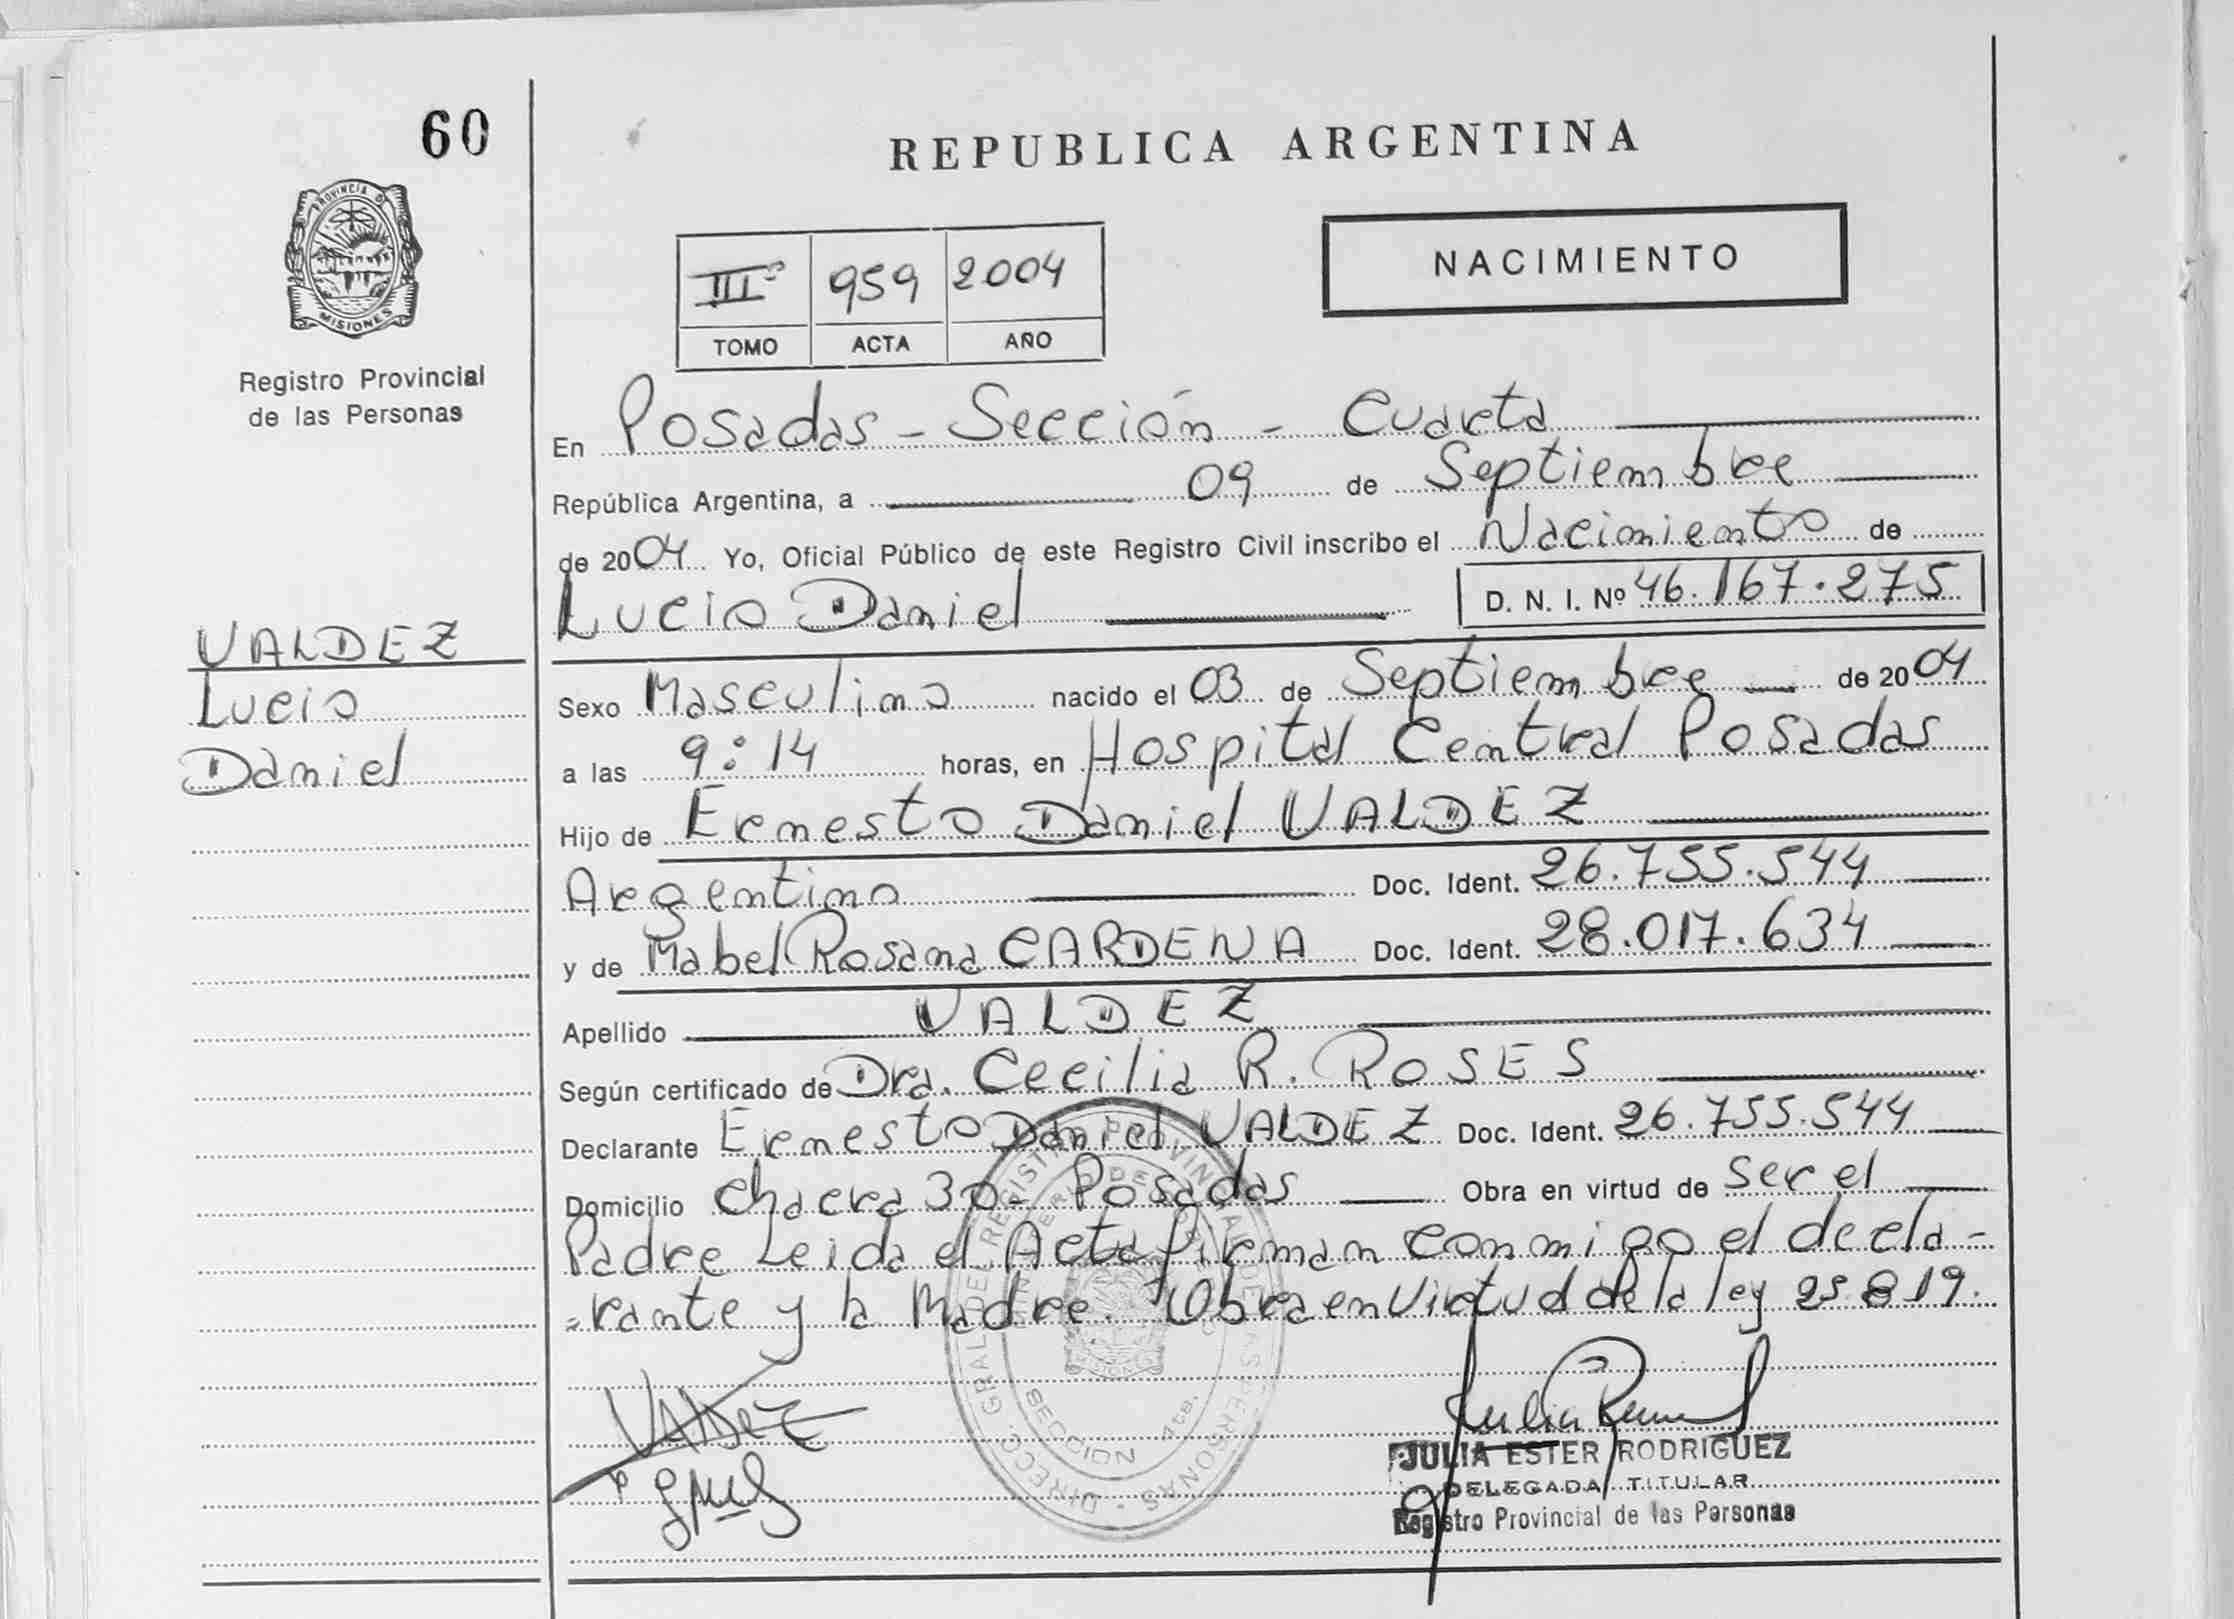 60
REPUBLICA ARGENTINA
PROVINCIA DE
MISIONES
Registro Provincial
de las Personas
NACIMIENTO
IIIº 959 2004
TOMO ACTA AÑO
En Posadas - Sección - Cuarta
República Argentina, a 09 de Septiembre
de 2004 Yo, Oficial Público de este Registro Civil inscribo el Nacimiento de
Lucio Daniel D. N. I. Nº 46.167.275
VALDEZ
Lucio
Daniel
Sexo Masculino nacido el 03 de Septiembre de 2004
a las 9:14 horas, en Hospital Central Posadas
Hijo de Ernesto Daniel VALDEZ
Argentino Doc. Ident. 26.755.544
y de Mabel Rosana CARDENA Doc. Ident. 28.017.634
Apellido VALDEZ
Según certificado de Dra. Cecilia R. ROSES
Declarante Ernesto Daniel VALDEZ Doc. Ident. 26.755.544
Domicilio Chacra 30 - Posadas Obra en virtud de ser el
Padre Leida el Acta firman conmigo el decla-
-rante y la Madre. Obra en Virtud de la ley 25.819.
VALDEZ
SECCION 4ta.
JULIA ESTER RODRIGUEZ
DELEGADA TITULAR
Registro Provincial de las Personas